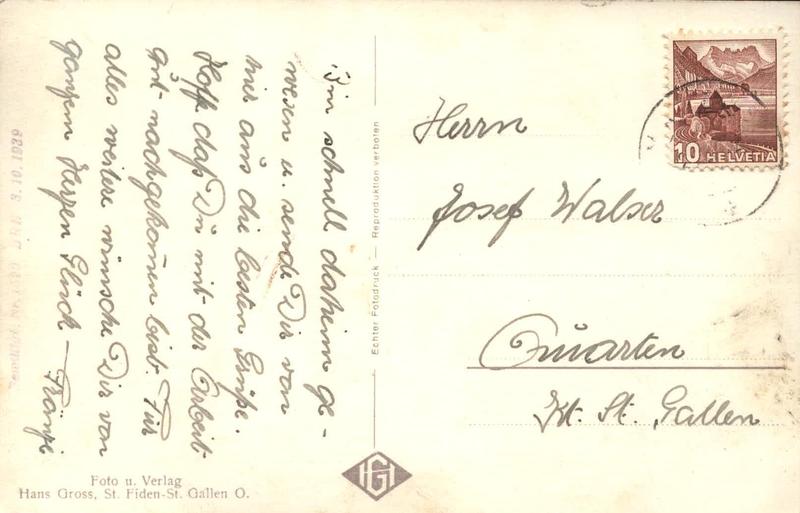 Bin schnell daheim ge-
wesen u. sende Dir von
mir aus die besten Grüße.
Hoff daß Du mit der Arbeit
gut nachgekommen bist. Für
alles weitere wünsche Dir von
ganzem Herzen Glück – Fränzi
Echter Fotodruck — Reproduktion verboten
Herrn
Josef Walser
Quarten
Kt. St. Gallen
10 HELVETIA
3.10.1939
Foto u. Verlag
Hans Gross, St. Fiden-St. Gallen O.